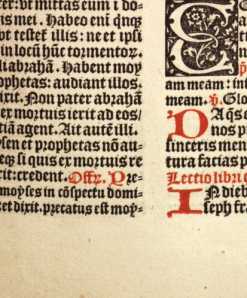 ter: vt mittas eum i do-
is mei. Habeo eni qnq̃
vt testet̃ illis: ne et ipsi
in locũ hũc tormentoꝝ.
li abrahã. Habent moy
ophetas: audiant illos.
ixit. Non pater abrahã
ex mortuis ierit ad eos/
tiã agent. Ait autẽ illi.
ysen et prophetas nõ au-
ecꝫ si quis ex mortuis re
rit: credent. Offr̃. Pre-
moyses in cõspectu domi-
et dixit. precatus est moy-
am meam: in
meam. Glo
Da q̃s
nos p
sinceris men
tura facias p
Lectio libri
In dieb
seph fra